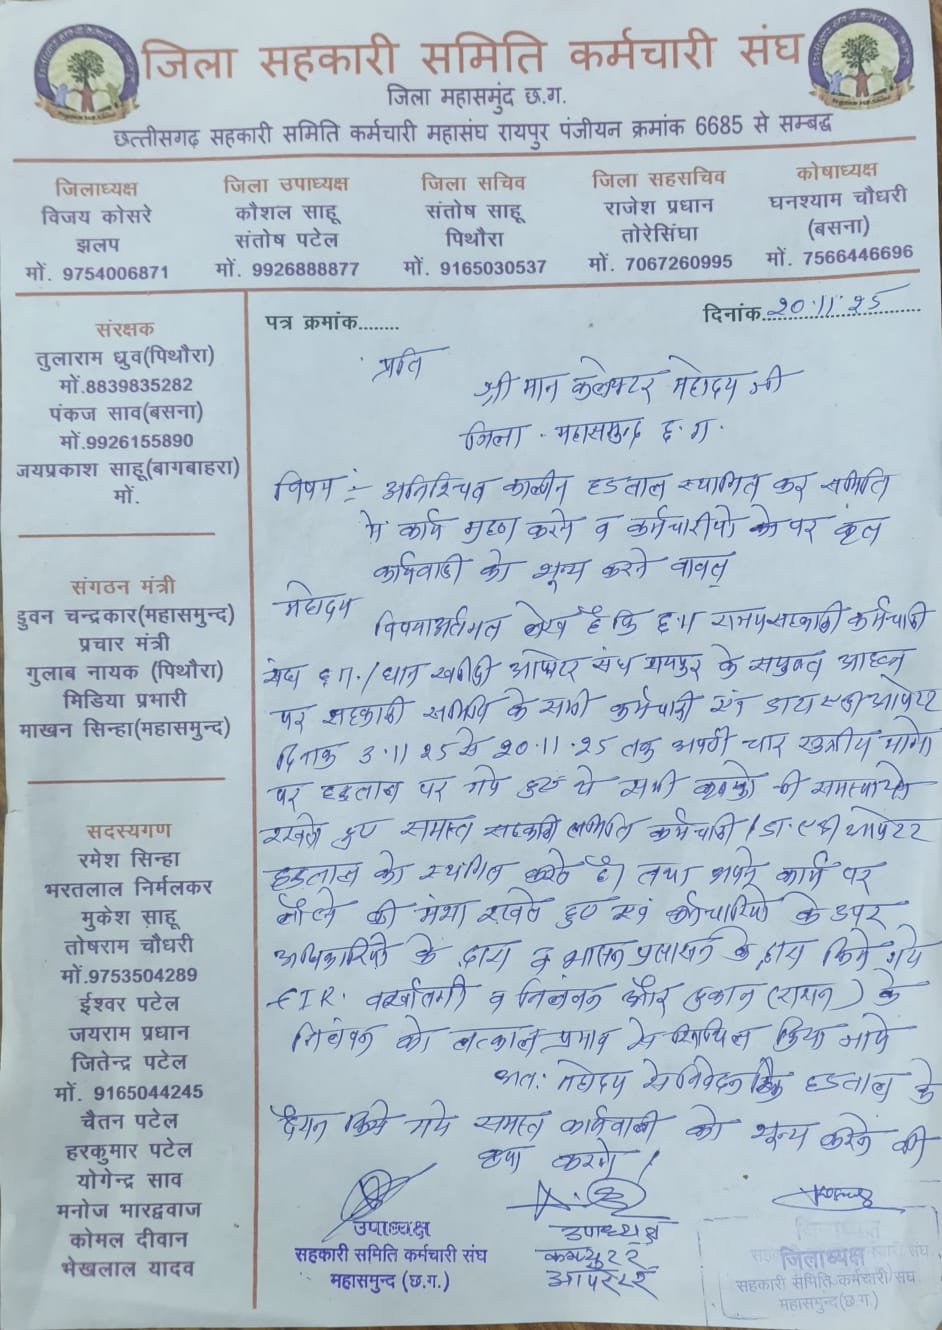 जिला सहकारी समिति कर्मचारी संघ
जिला महासमुंद छ.ग.
छत्तीसगढ़ सहकारी समिति कर्मचारी महासंघ रायपुर पंजीयन क्रमांक 6685 से सम्बद्ध
जिलाध्यक्ष
विजय कोसरे
झलप
मों. 9754006871
जिला उपाध्यक्ष
कौशल साहू
संतोष पटेल
मों. 9926888877
जिला सचिव
संतोष साहू
पिथौरा
मों. 9165030537
जिला सहसचिव
राजेश प्रधान
तोरेसिंघा
मों. 7067260995
कोषाध्यक्ष
घनश्याम चौधरी
(बसना)
मों. 7566446696
संरक्षक
तुलाराम ध्रुव(पिथौरा)
मों.8839835282
पंकज साव(बसना)
मों.9926155890
जयप्रकाश साहू(बागबाहरा)
मों.
संगठन मंत्री
डुवन चन्द्रकार(महासमुन्द)
प्रचार मंत्री
गुलाब नायक (पिथौरा)
मिडिया प्रभारी
माखन सिन्हा(महासमुन्द)
सदस्यगण
रमेश सिन्हा
भरतलाल निर्मलकर
मुकेश साहू
तोषराम चौधरी
मों.9753504289
ईश्वर पटेल
जयराम प्रधान
जितेन्द्र पटेल
मों. 9165044245
चैतन पटेल
हरकुमार पटेल
योगेन्द्र साव
मनोज भारद्ववाज
कोमल दीवान
भेखलाल यादव
पत्र क्रमांक........
दिनांक 20.11.25
प्रति
श्री मान कलेक्टर महोदय जी
जिला - महासमुन्द छ.ग.
विषय :- अनिश्चित कालीन हडताल स्थागित कर समिति
में कार्य ग्रहण करने व कर्मचारीयो के पर कृत
कार्यवाही को शून्य करने वावत्
महोदय
लेख है कि छ.ग कर्मचारी
संघ छ.ग./धान खरीदी आपरेटर संघ रायपुर के सयुक्त
पर सहकारी समिति के सभी कर्मचारी एवं डाटा एन्ट्री आपरेटर
दिनाक 3.11.25 से 20.11.25 तक अपनी चार सूत्रीय मांगो
पर हडताल पर गये हुए थे सभी कृषको की
रखते हुए समस्त सहकारी समिति कर्मचारी / आपरेटर
हडताल को स्थगित करते है। तथा अपने कार्य पर
लौटने की मंशा रखते हुए एवं कर्मचारियो के उपर
अधिकारियो के द्वारा व शासन प्रशासन के द्वारा किये गये
FIR. बर्खास्तगी व निलंबन और दुकान (राशन) के
निलंबन को तत्काल प्रभाव से किया जाये
अत: महोदय से निवेदन है कि हडताल के
दौरान किये गये समस्त कार्यवाही को शून्य करने की
कृपा करेगे।
उपाध्यक्ष
सहकारी समिति कर्मचारी संघ
महासमुन्द (छ.ग.)
उपाध्यक्ष
कम्प्यूटर
आपरेटर
जिलाध्यक्ष
सहकारी समिति कर्मचारी संघ
महासमुन्द(छ.ग.)